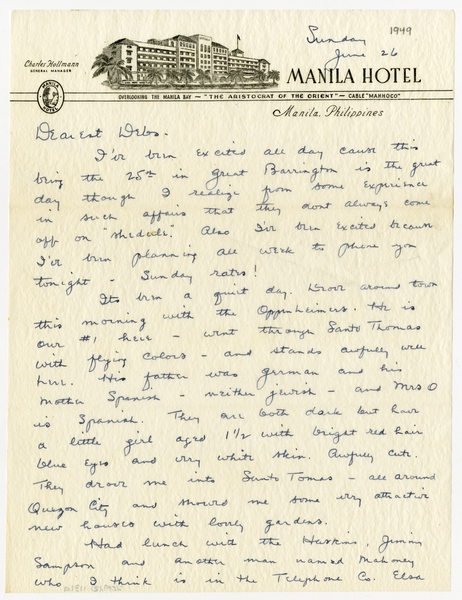 1949
Sunday
June 26
Charles Hollmann
GENERAL MANAGER
MANILA HOTEL
MANILA HOTEL
OVERLOOKING THE MANILA BAY — "THE ARISTOCRAT OF THE ORIENT" — CABLE "MANHOCO"
Manila, Philippines
Dearest Debs -
I've been excited all day cause this
being the 25th in Great Barrington is the great
day though I realize from some experience
in such affairs that they dont always come
off on "shedule". Also I've been excited because
I've been planning all week to phone you
tonight - Sunday rates!
Its been a quiet day. Drove around town
this morning with the Oppenheimers. He is
our #1 here - went through Santo Thomas
with flying colors - and stands awfully well
here. His father was german and his
mother Spanish - neither jewish - and Mrs O
is Spanish. They are both dark but have
a little girl aged 1½ with bright red hair
blue eyes and very white skin. Awfully cute.
They drove me into Santo Tomas - all around
Quezon City and showed me some very attractive
new houses with lovely gardens.
Had lunch with the Huskins, Jimmy
Sampson and another man named Mahoney
who I think is in the Telephone Co. Elsa